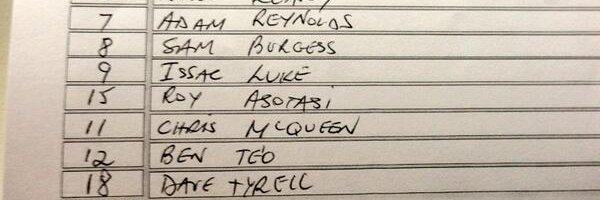 7 ADAM REYNOLDS
8 SAM BURGESS
9 ISSAC LUKE
15 ROY ASOTASI
11 CHRIS MCQUEEN
12 BEN TE'O
18 DAVE TYRELL